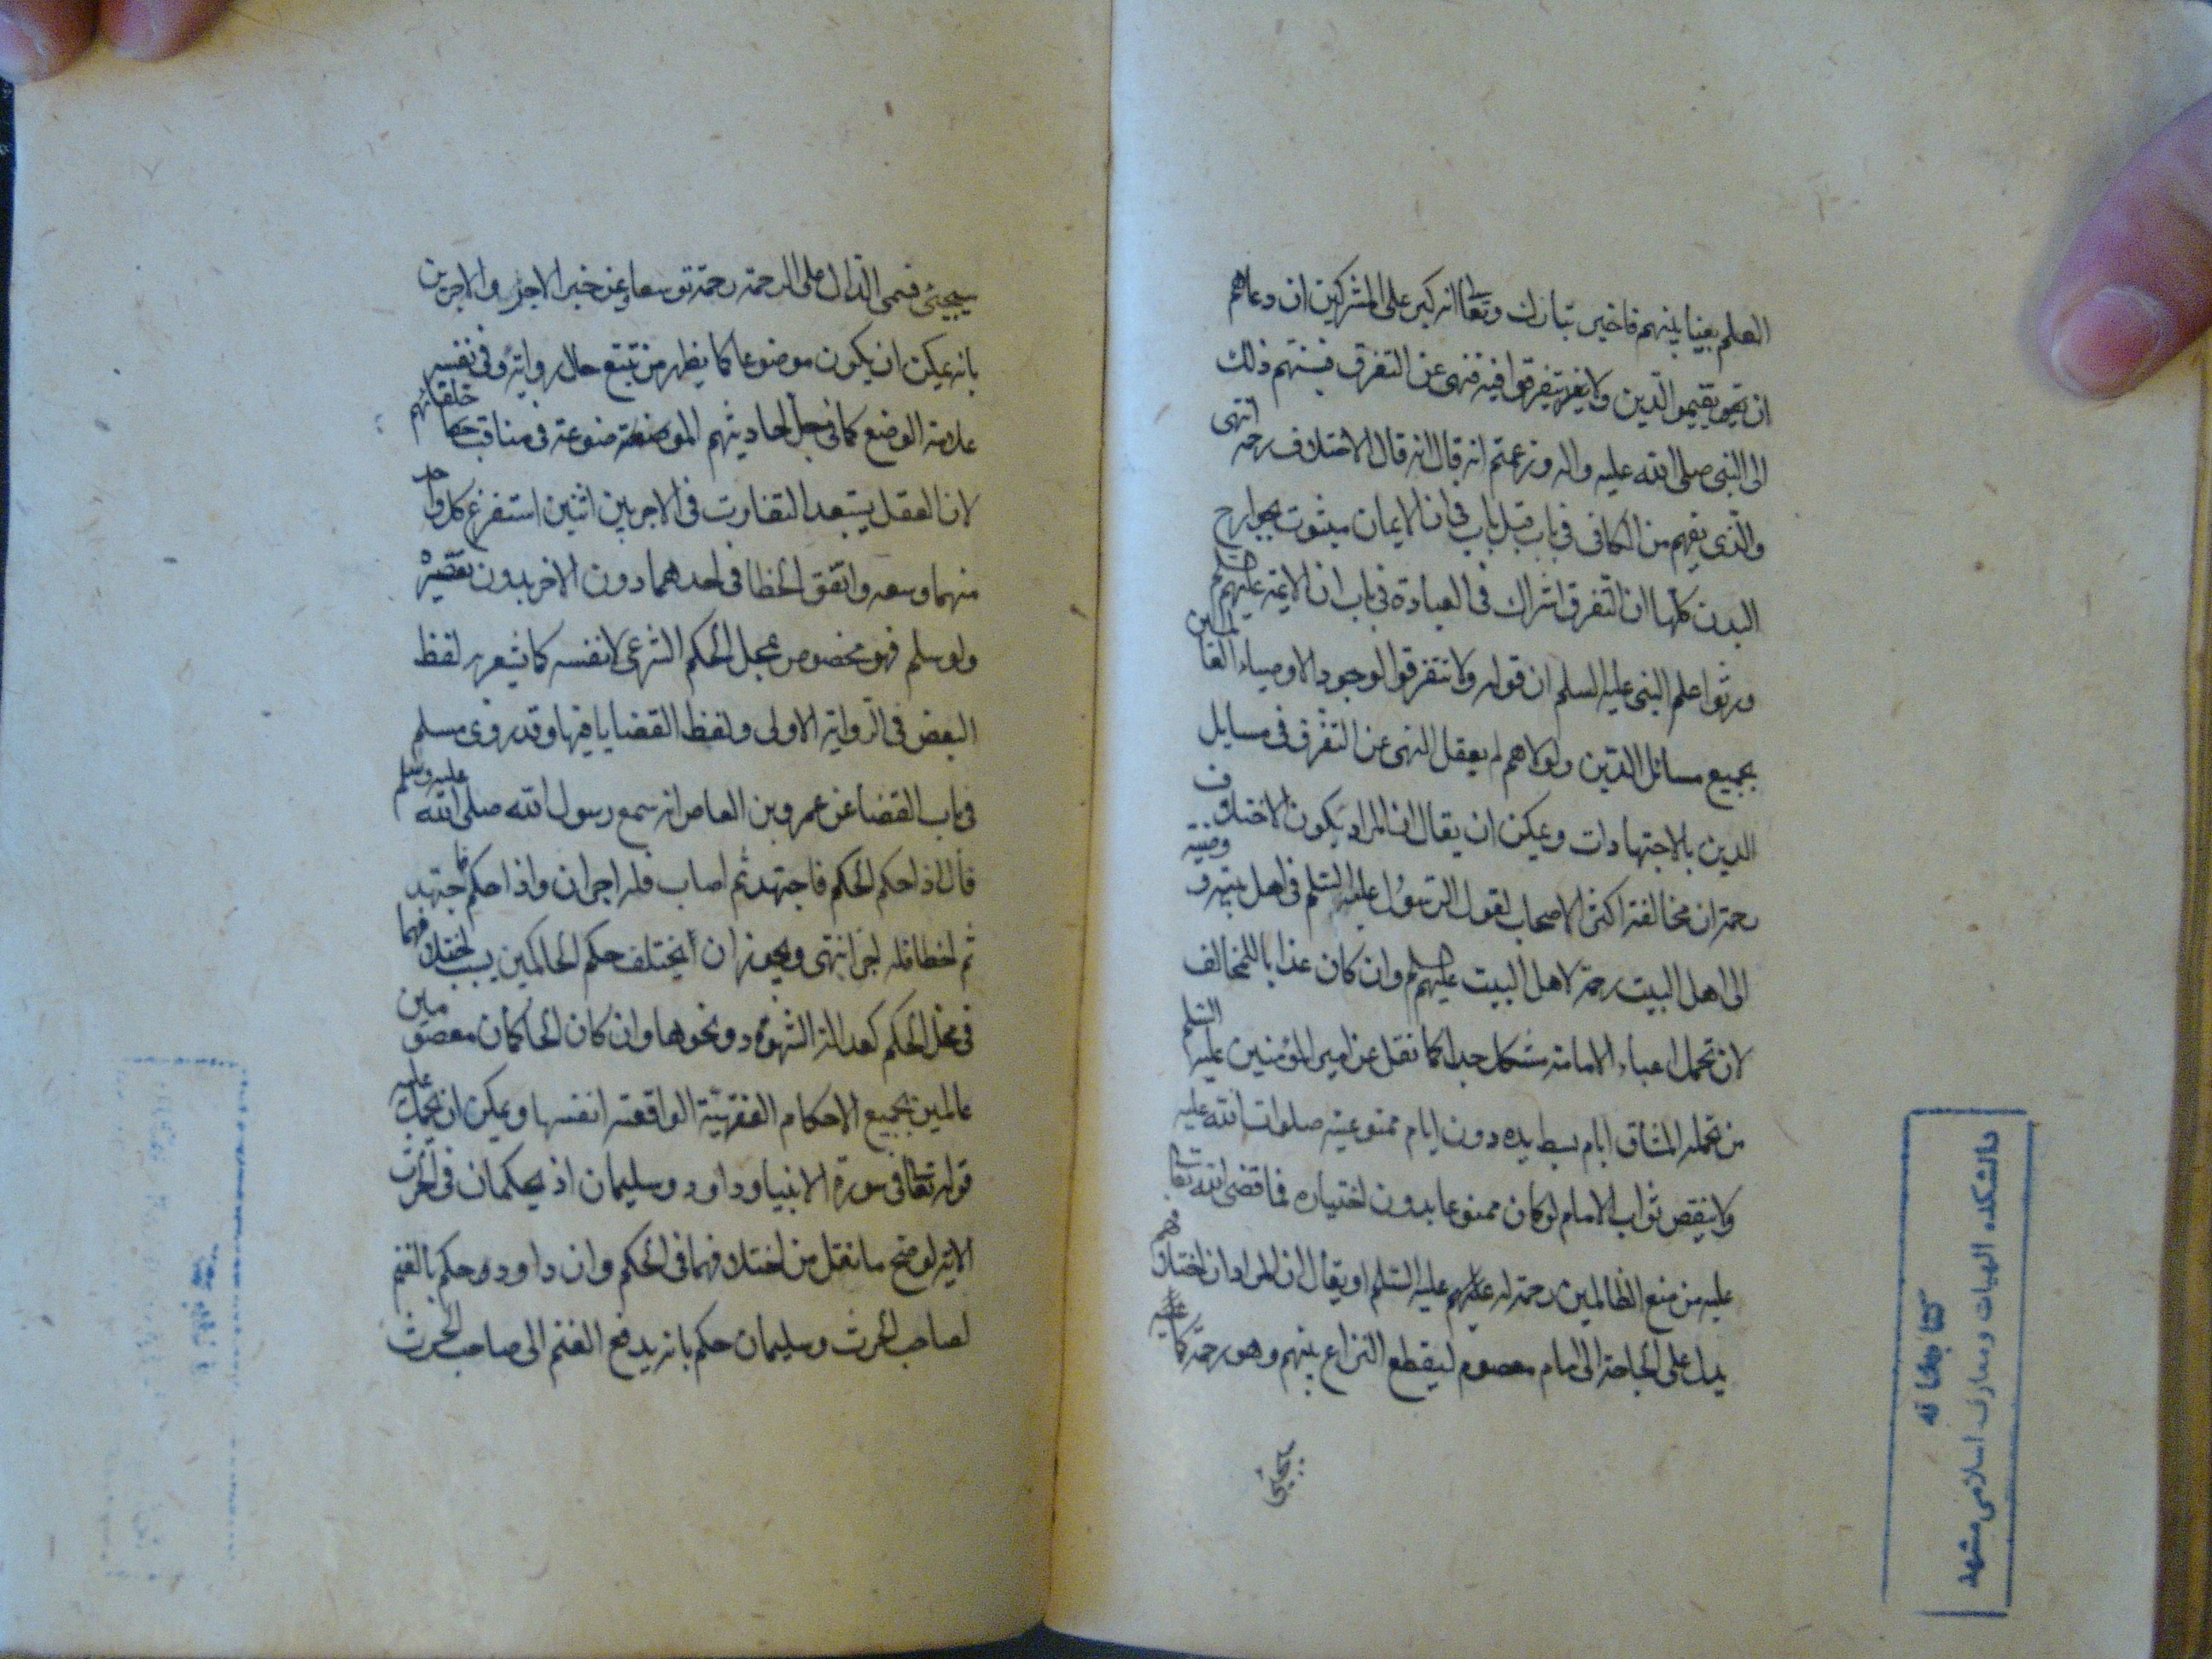 العلم بغيا بينهم فاخبر تبارك وتعالى انه كبر على المشركين ان دعاهم
ان يقيمو الدين ولا يتفرقوا فيه فنهى عن التفرق فيهم ذلك
الى النبى صلى الله عليه واله وزعمتم انه قال انه قال الاختلاف رحمة انتهى
والذى يفهم من الكافى فى باب قبل باب فى ان الايمان مبثوث بجوارح
البدن كلها ان التفرق اشراك فى العبادة فى باب ان الائمة عليهم السلم
ورثوا علم النبى عليه السلم ان قوله ولا تتفرقوا لوجود الاوصياء العالمين
بجميع مسائل الدين ولولاهم لم يعقل النهى عن التفرق فى مسايل
الدين بالاجتهادات ويمكن ان يقال ان المراد بكون الاختلاف
رحمة ان مخالفة اكثر الاصحاب لقول الرسول عليه السلم فى اهل بيته ووصيته
الى اهل البيت رحمة لاهل البيت عليهم السلم وان كان عذابا للمخالف
لان تحمل اعباء الامامة مشكل جدا كما نقل عن امير المؤمنين عليه السلم
من تحمله المشاق ايام بسط يده دون ايام ممنوعيته صلوات الله عليه
ولا ينقص ثواب الامام لو كان ممنوعا بدون اختياره فما قضى الله تعالى
عليه من منع الظالمين رحمة له عليه السلم او يقال ان المراد ان اختلافهم
يدل على الحاجة الى امام معصوم ليقطع النزاع بينهم وهو رحمة كما
سيجيئ
دانشکده الهیات ومعارف اسلامی مشهد
کتابخانه
سيجيئ فسمى الدال على الرحمة رحمة توسعا وعن خبر الاجر والاجرين
بانه يمكن ان يكون موضوعا كما يظهر من تتبع حال رواته وفى نفسه
علامة الوضع كما فى جل احاديثهم الموضوعة فى مناقب خلفائهم
لان العقل يستبعد التفاوت فى الاجر بين اثنين استفرغ كل واحد
منهما وسعه واتفق الخطا فى احدهما دون الاخر بدون تقصيره
ولو سلم فهو مخصوص بمحل الحكم الشرعى لا نفسه كما يشعر به لفظ
البعض فى الرواية الاولى ولفظ القضايا فيها وقد روى مسلم
فى باب القضا عن عمرو بن العاص انه سمع رسول الله صلى الله عليه وسلم
قال اذا حكم الحكم فاجتهد ثم اصاب فله اجران واذا حكم فاجتهد
ثم اخطا فله اجر انتهى ويجوز ان يختلف حكم الحاكمين بسبب اختلافهما
فى محل الحكم كعدالة الشهود ونحوها وان كان الحاكمان معصومين
عالمين بجميع الاحكام الفقهية الواقعة انفسها ويمكن ان يحمل عليه
قوله تعالى فى سورة الانبيا وداود وسليمان اذ يحكمان فى الحرث
الاية لو صح ما نقل من اختلافهما فى الحكم وان داود حكم بالغنم
لصاحب الحرث وسليمان حكم بانه يدفع الغنم الى صاحب الحرث